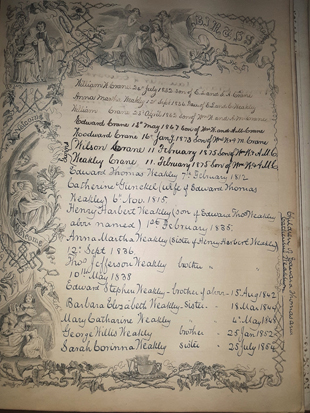 BIRTHS
William H. Crane 24th July 1832 Son of
Anna Martha Weakly 12th Sept 1836
William Crane 23d April 1862 Son of Wm H. and A.M. Crane
Edward Crane 14th May 1867 Son of Wm H. and A.M. Crane
Woodward Crane 16th Jany 1873 Son of Wm H & A M. Crane
Wilson Crane 11 February 1875 Son of Wm H & A M C
Weakly Crane 11 February 1875 Son of Wm H & A M C
Twins
Edward Thomas Weakly 7th February 1812
Catherine Gunckel (wife of Edward Thomas
Weakly) 6th Nov 1815
Henry Harbert Weakly (son of Edward Thos Weakly
above named) 1st February 1835.
Anna Martha Weakly (sister of Henry Harbert Weakly)
12th Sept 1836
Thos Jefferson Weakly brother
10th May 1838
Edward Stephen Weakly - brother of above - 15th Aug 1842
Barbara Elizabeth Weakly - Sister - 18 Mar 184
Mary Catharine Weakly 4th May 184
George Willis Weakly brother - 25 Jan 1852
Sarah Corinna Weakly sister - 28 July 1854
Children of Edward Thomas